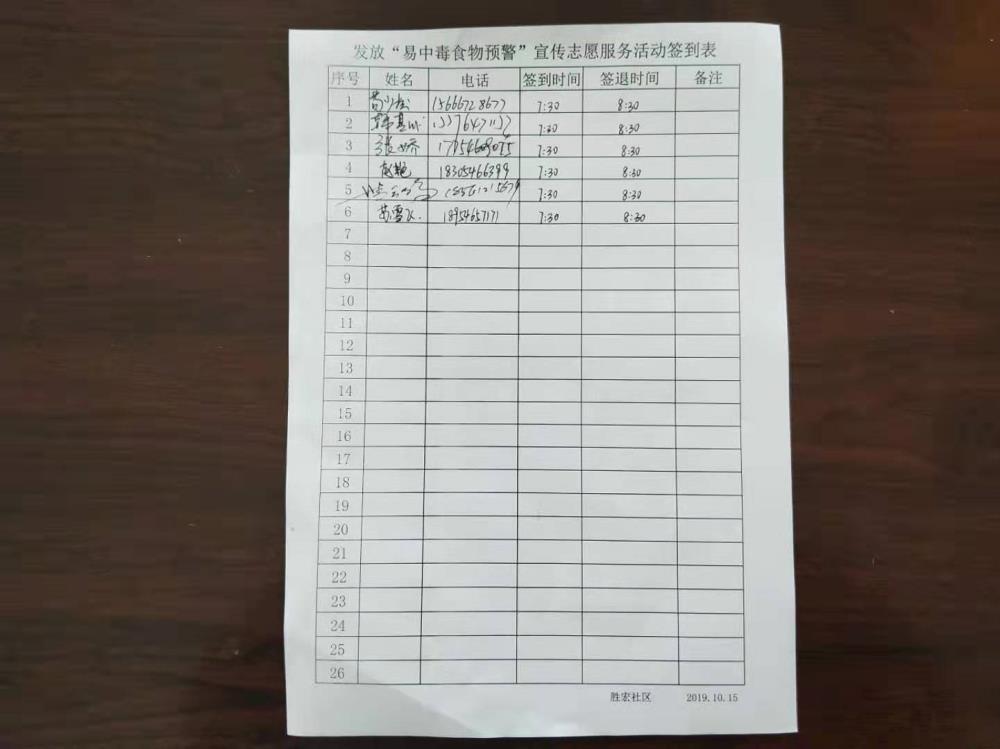 发放“易中毒食物预警”宣传志愿服务活动签到表
序号 姓名 电话 签到时间 签退时间 备注
1 15666728677 7:30 8:30
2 7:30 8:30
3 张娇 7:30 8:30
4 赵艳 18305466399 7:30 8:30
5 7:30 8:30
6 苏雪飞 18954657171 7:30 8:30
7
8
9
10
11
12
13
14
15
16
17
18
19
20
21
22
23
24
25
26
胜宏社区 2019.10.15